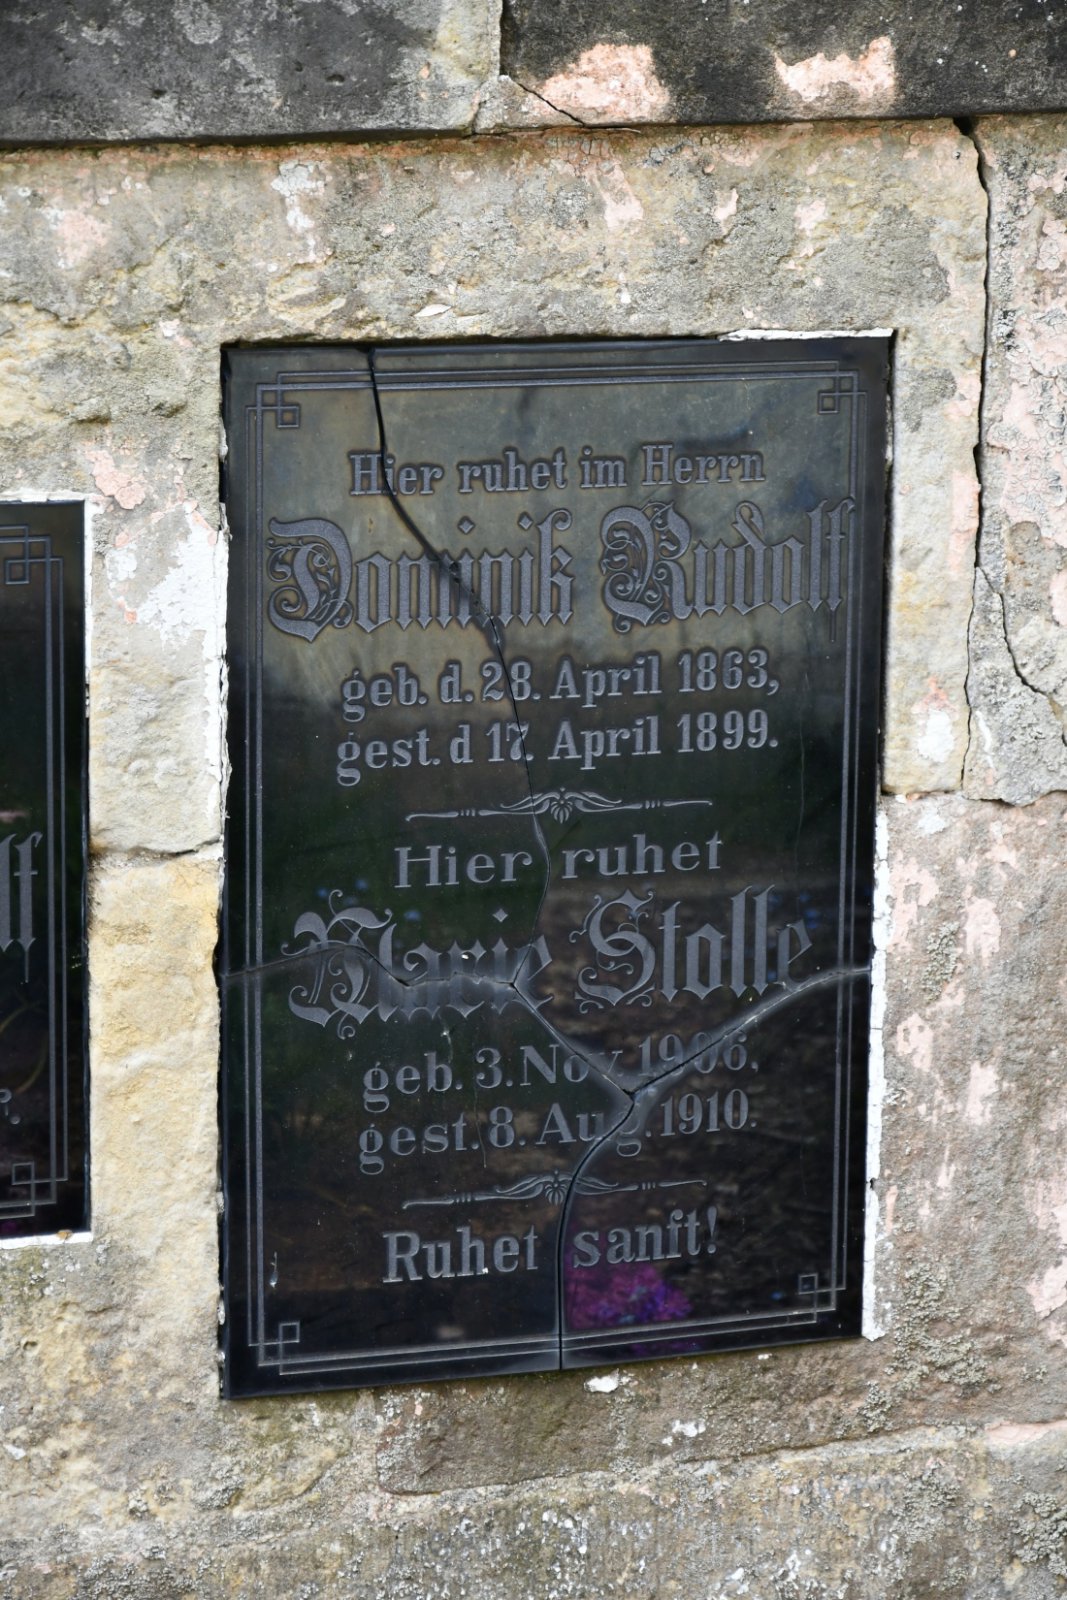 Hier ruhet im Herrn
Dominik Rudolf
geb. d. 28. April 1863,
gest. d 17. April 1899.
Hier ruhet
Marie Stolle
geb. 3. Nov. 1906,
gest. 8. Aug. 1910.
Ruhet sanft!